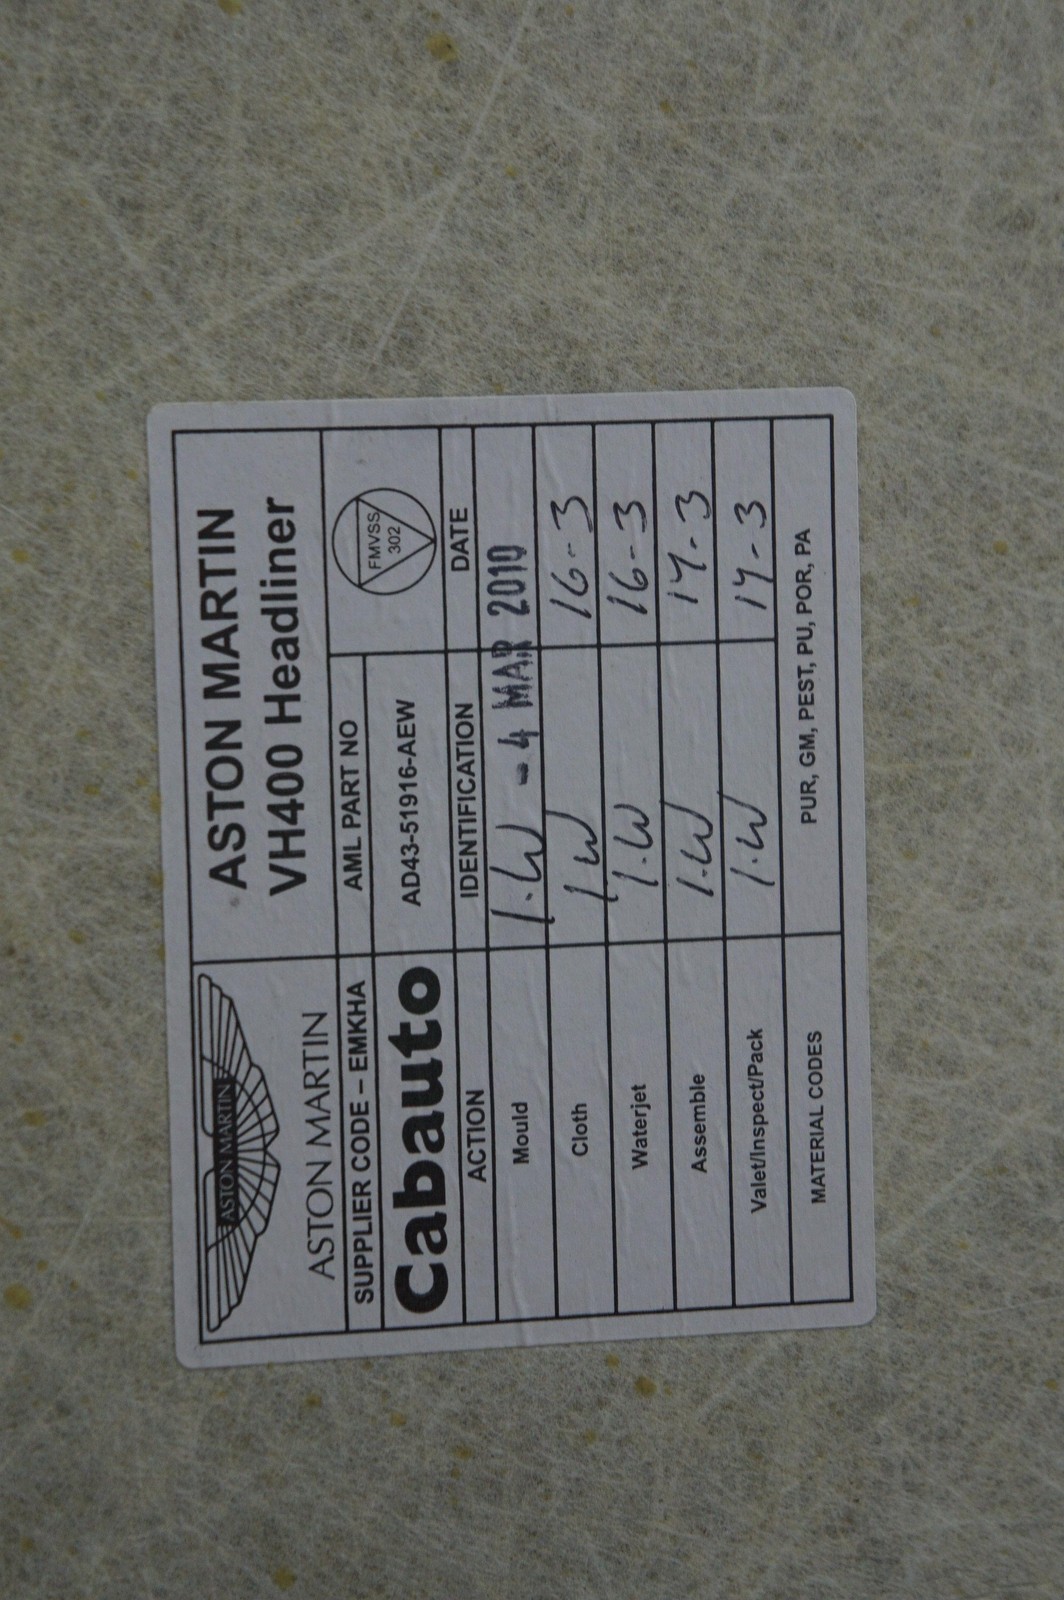 ASTON MARTIN
ASTON MARTIN
ASTON MARTIN
VH400 Headliner
SUPPLIER CODE – EMKHA
AML PART NO
FMVSS
302
Cabauto
AD43-51916-AEW
ACTION IDENTIFICATION DATE
Mould I.W - 4 MAR 2010
Cloth I.W 16-3
Waterjet I.W 16-3
Assemble I.W 17-3
Valet/Inspect/Pack I.W 17-3
MATERIAL CODES PUR, GM, PEST, PU, POR, PA